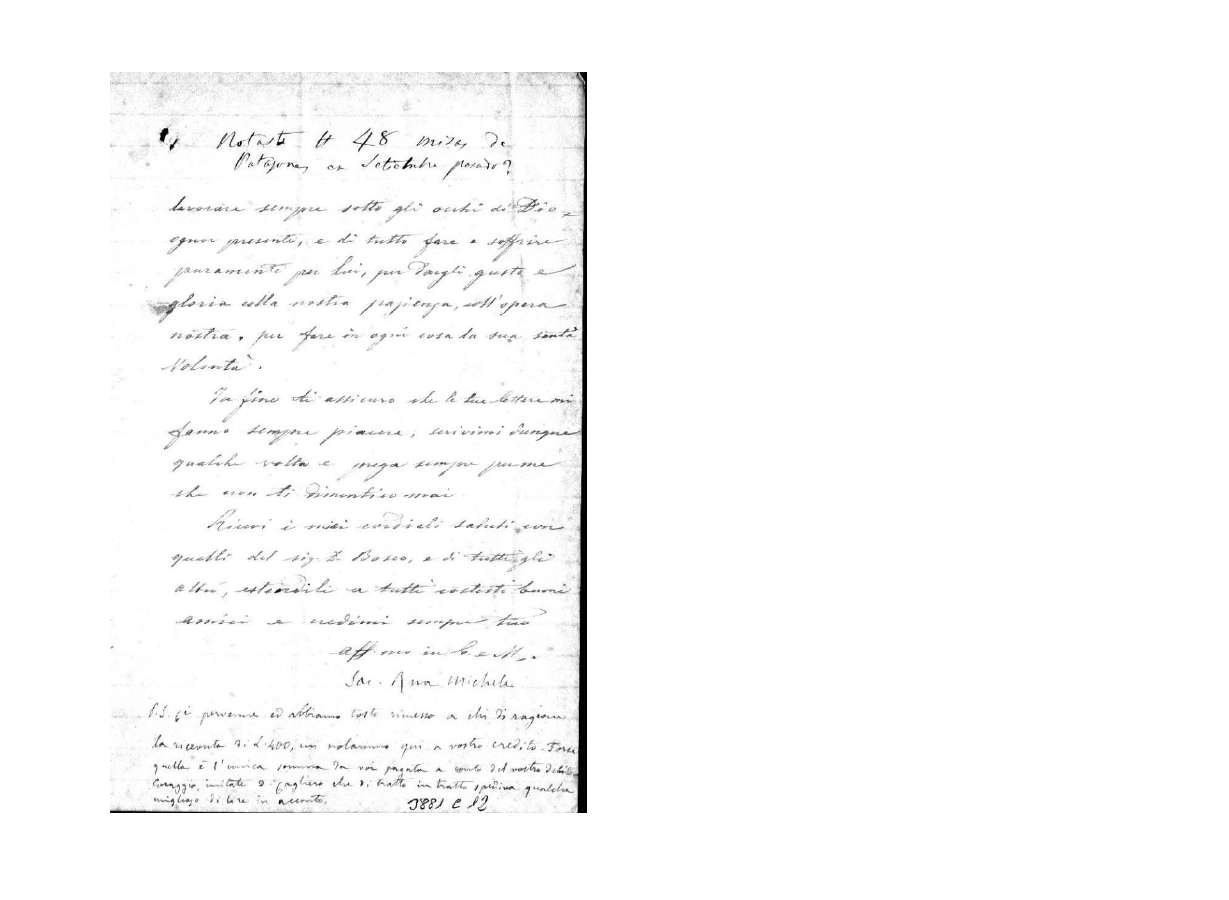 Notaste ₶ 48 misas de
Patagones en Setiembre pasado?
lavorare sempre sotto gli occhi di Dio
ognor presente, e di tutto fare e soffrire
puramente per lui, per dargli gusto e
gloria colla nostra pazienza, coll'opera
nostra, per fare in ogni cosa la sua santa
Volontà.
In fine ti assicuro che le tue lettere mi
fanno sempre piacere; scrivimi dunque
qualche volta e prega sempre per me
che non ti dimentico mai
Ricevi i miei cordiali saluti con
quelli del sig. D. Bosco, e di tutti gli
altri, estendili a tutti cotesti buoni
amici e credimi sempre tuo
aff.mo in G. e M.
Sac. Rua Michele
P.S. Ci pervenne ed abbiamo tosto rimesso a chi di ragione
la ricevuta di L. 400, notammo qui a vostro credito. Forse
quella è l'unica somma da voi pagata a conto del vostro debito
Coraggio, imitate D. Cagliero che di tratto in tratto spediva qualche
migliajo di lire in acconto.
3881 C 12